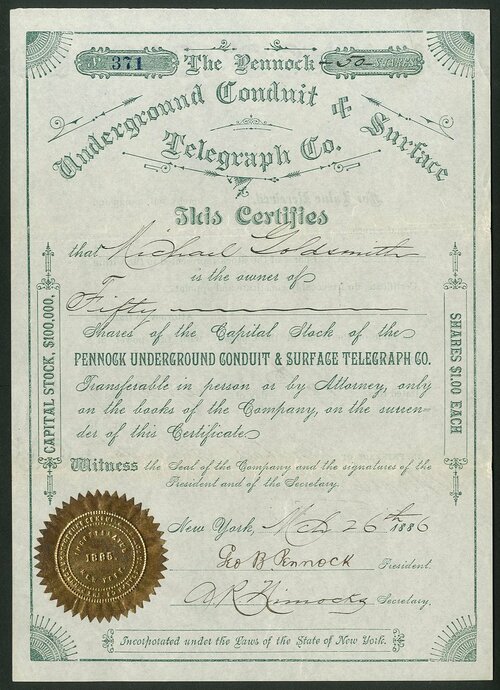 No 371
The Pennock
-50- SHARES
Underground Conduit & Surface
Telegraph Co.
This Certifies
that Michael Goldsmith
is the owner of
Fifty
Shares of the Capital Stock of the
PENNOCK UNDERGROUND CONDUIT & SURFACE TELEGRAPH CO.
Transferable in person or by Attorney, only
on the books of the Company, on the surren-
der of this Certificate
Witness the Seal of the Company and the signatures of the
President and of the Secretary.
New York, Mch 26th 1886
Geo B Pennock President.
Secretary.
Incorporated under the Laws of the State of New York.
CAPITAL STOCK, $100,000.
SHARES $1.00 EACH
INCORPORATED
1885.
NEW YORK